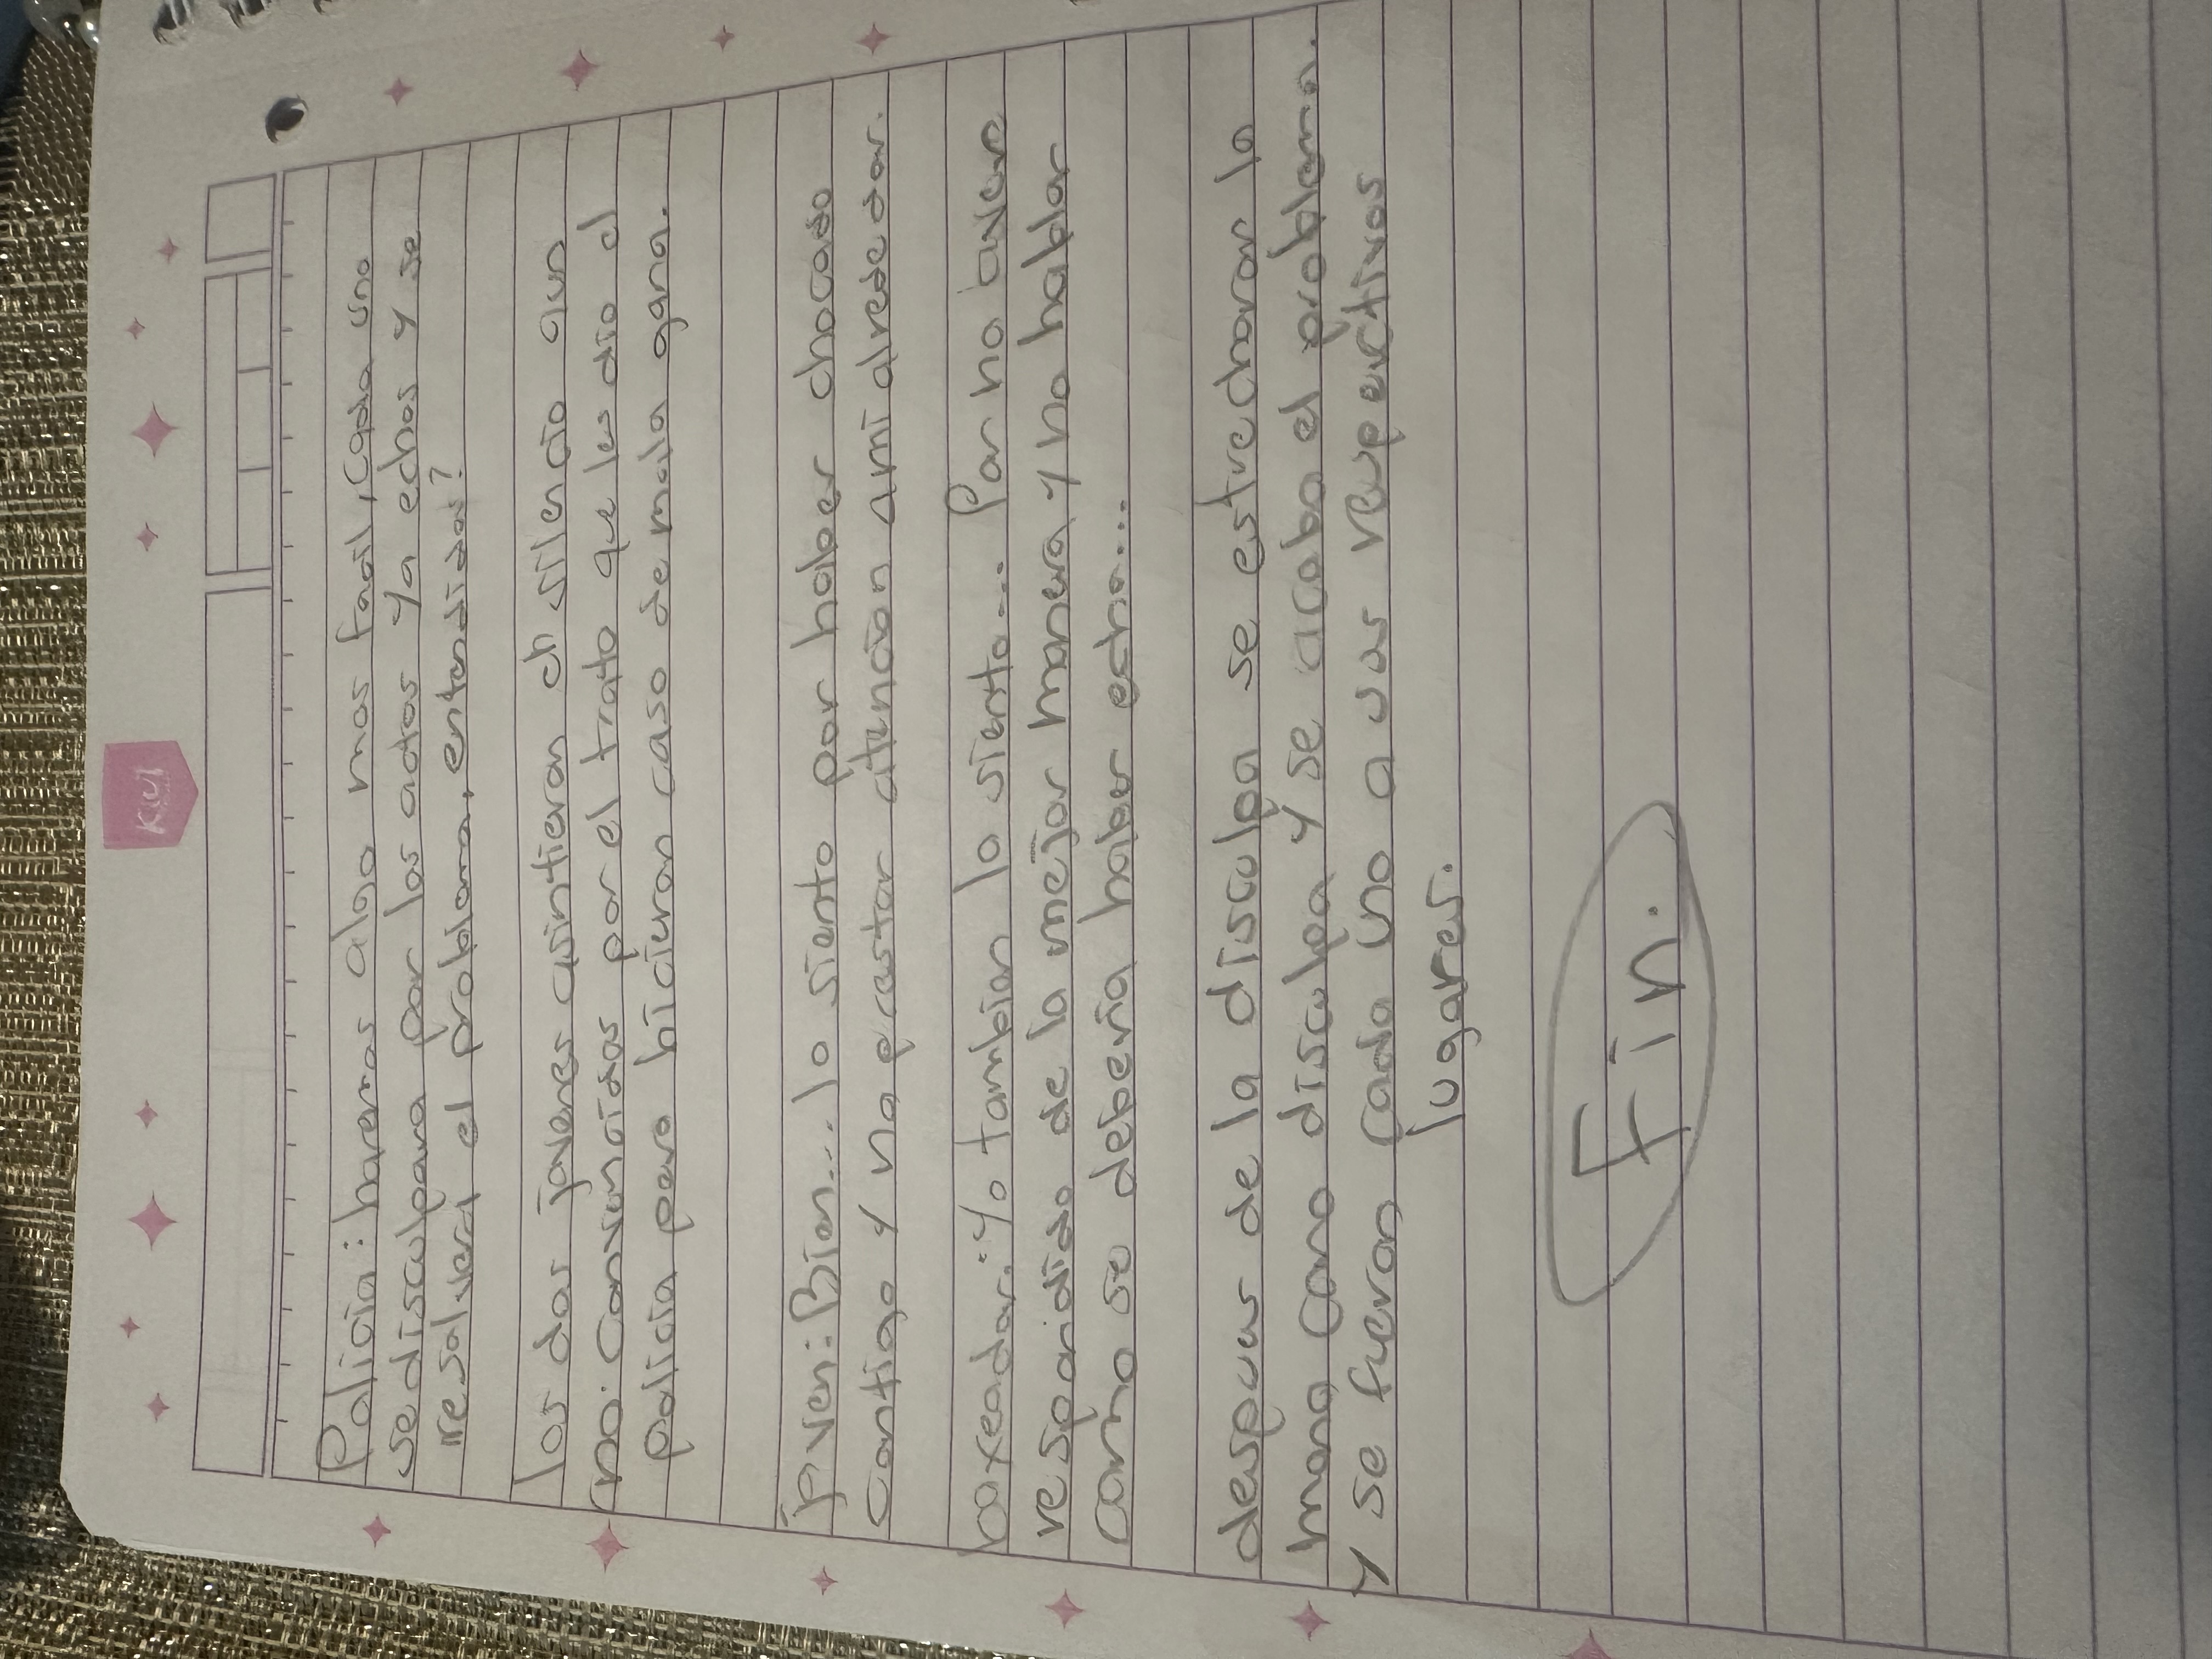 KIUI
Policia: haremos algo mas facil, cada uno
se disculpara por los actos ya echos y se
resolvera el problema, entendidos?
los dos jovenes asintieron en silencio aun
no convencidos por el trato que les dio el
policia pero hicieron caso de mala gana.
joven: Bien... lo siento por haber chocado
contigo y no prestar atención a mi alrededor.
boxeador: yo tambien lo siento... Por no aver
respondido de la mejor manera y no hablar
como se deberia haber echo...
despues de la disculpa se estrecharon la
mano como disculpa y se acabo el problema.
y se fueron cada uno a sus respectivos
lugares.
Fin.